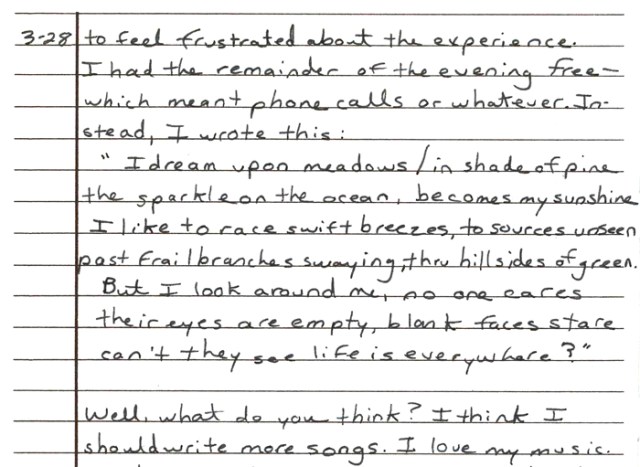 3-28 to feel frustrated about the experience.
I had the remainder of the evening free—
which meant phone calls or whatever. In-
stead, I wrote this:
" I dream upon meadows / in shade of pine
the sparkle on the ocean, becomes my sunshine
I like to race swift breezes, to sources unseen
past frail branches swaying, thru hillsides of green.
But I look around me, no one cares
their eyes are empty, blank faces stare
can't they see life is everywhere?"
Well, what do you think? I think I
should write more songs. I love my music.